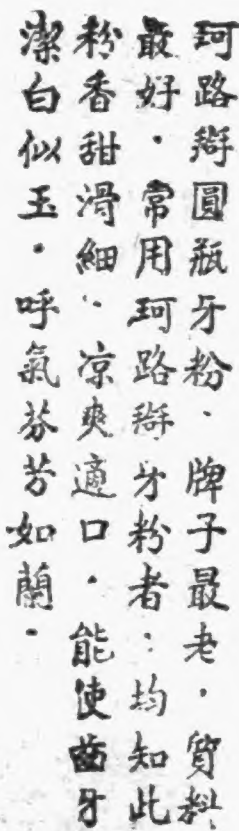 珂路搿圓瓶牙粉．牌子最老．質料
最好．常用珂路搿牙粉者：均知此
粉香甜滑細．涼爽適口．能使齒牙
潔白似玉．呼氣芬芳如蘭．